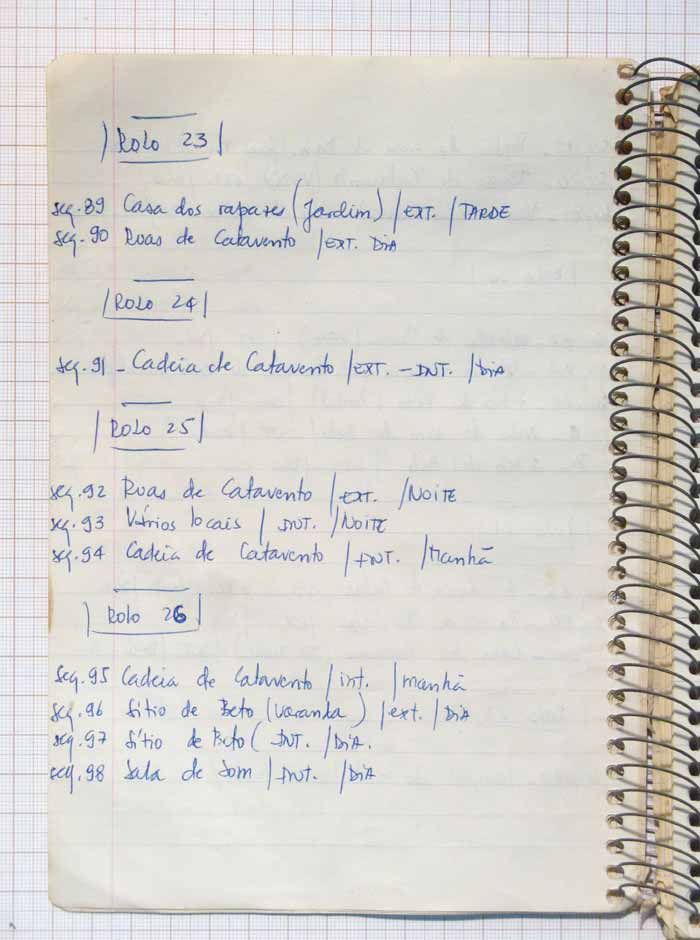 ROLO 23
seq. 89 Casa dos rapazes (Jardim) / EXT. / TARDE
seq. 90 Ruas de Catavento / EXT. DIA
ROLO 24
seq. 91 - Cadeia de Catavento / EXT. - INT. / DIA
ROLO 25
seq. 92 Ruas de Catavento / EXT. / NOITE
seq. 93 Vários locais / INT. / NOITE
seq. 94 Cadeia de Catavento / INT. / Manhã
ROLO 26
seq. 95 Cadeia de Catavento / int. / manhã
seq. 96 Sítio de Beto (Varanda) / ext. / DIA
seq. 97 Sítio de Beto ( INT. / DIA.
seq. 98 Sala de Som / INT. / DIA